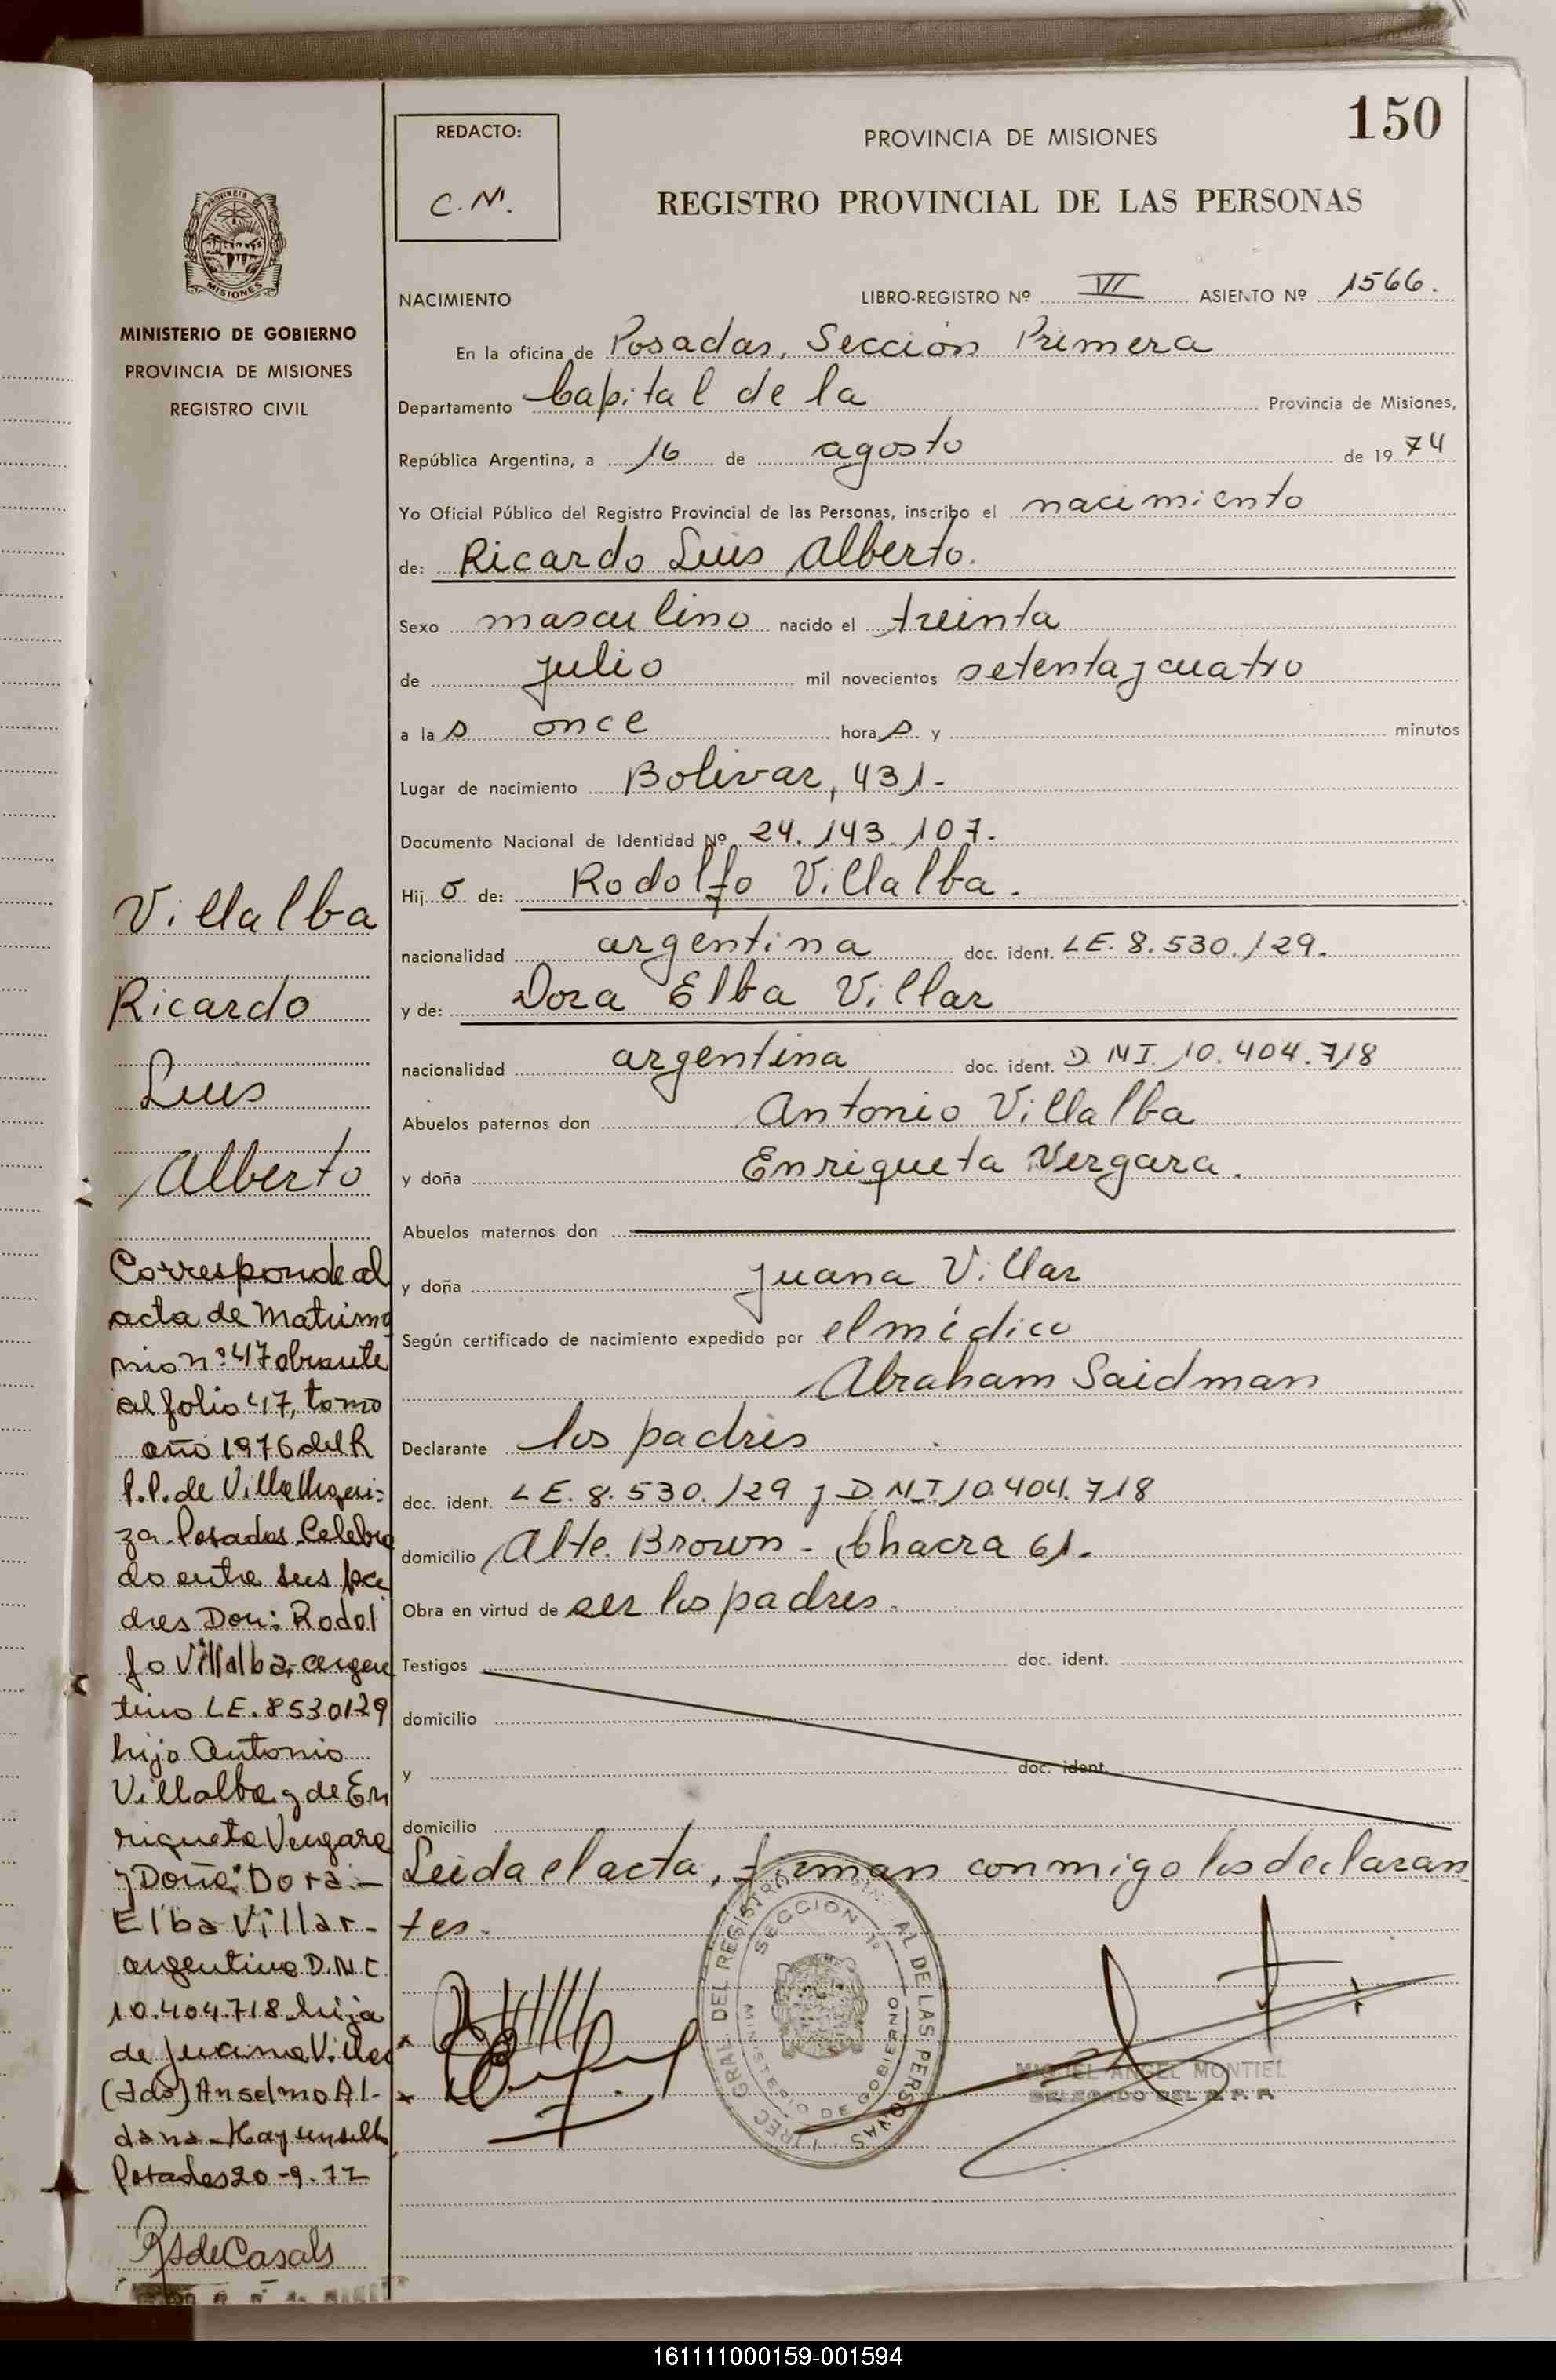 150
REDACTO:
C. M.
PROVINCIA DE MISIONES
REGISTRO PROVINCIAL DE LAS PERSONAS
MISIONES
MINISTERIO DE GOBIERNO
PROVINCIA DE MISIONES
REGISTRO CIVIL
NACIMIENTO LIBRO-REGISTRO Nº VII ASIENTO Nº 1566.
En la oficina de Posadas, Sección Primera
Departamento Capital de la Provincia de Misiones,
República Argentina, a 16 de agosto de 1974
Yo Oficial Público del Registro Provincial de las Personas, inscribo el nacimiento
de: Ricardo Luis Alberto.
Sexo masculino nacido el treinta
de julio mil novecientos setenta y cuatro
a las once horas y minutos
Lugar de nacimiento Bolivar, 431.
Documento Nacional de Identidad Nº 24.143.107.
Hijo de: Rodolfo Villalba.
nacionalidad argentina doc. ident. LE. 8.530.129.
y de: Dora Elba Villar
nacionalidad argentina doc. ident. D.N.I. 10.404.718
Abuelos paternos don Antonio Villalba
y doña Enriqueta Vergara.
Abuelos maternos don
y doña Juana Villar
Según certificado de nacimiento expedido por el médico
Abraham Saidman
Declarante los padres
doc. ident. LE. 8.530.129 y D.N.I 10.404.718
domicilio Alte. Brown - Chacra 61.
Obra en virtud de ser los padres.
Testigos doc. ident.
domicilio
y doc. ident.
domicilio
Leida el acta, firman conmigo los declaran
tes.
MIGUEL ANGEL MONTIEL
DELEGADO DEL R. P. P.
DIREC. GRAL. DEL REGISTRO AL DE LAS PERSONAS
SECCION 1º
MINISTERIO DE GOBIERNO
Villalba
Ricardo
Luis
Alberto
Corresponde al
acta de Matrimo
nio nº 47 obrante
al folio 47, tomo
año 1976 del R
P.P. de Villa
za Posadas Celebra
do entre sus pa
dres Don: Rodol
fo Villalba, argen
tino LE. 8530129
hijo Antonio
Villalba y de En
riqueta Vergara
y Doña: Dora
Elba Villar-
argentina D.N.I.
10.404.718 hija
de Juana Villar
(Fdo) Anselmo Al-
dana- Hay un sello
Posadas 20-9-77
de Casals
161111000159-001594